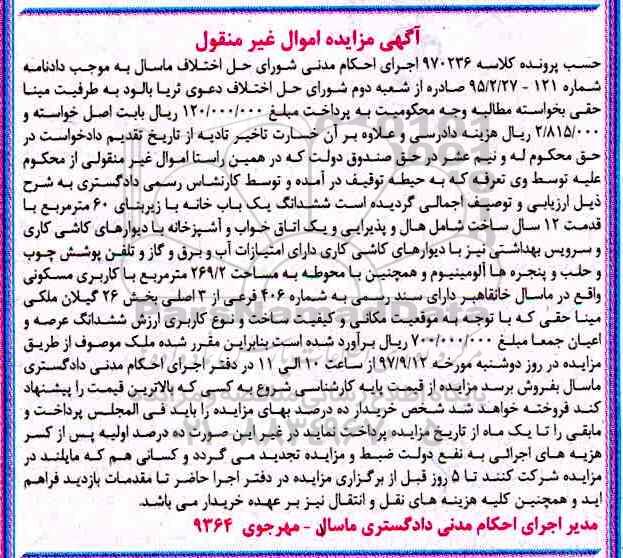 آگهی مزایده اموال غیر منقول
حسب پرونده کلاسه ۹۷۰۲۳۶ اجرای احکام مدنی شورای حل اختلاف ماسال به موجب دادنامه
شماره ۱۲۱ - ۹۵/۲/۲۷ صادره از شعبه دوم شورای حل اختلاف دعوی ثریا بالود به طرفیت مینا
حقی بخواسته مطالبه وجه محکومیت به پرداخت مبلغ ۱۲۰/۰۰۰/۰۰۰ ریال بابت اصل خواسته و
۲/۸۱۵/۰۰۰ ریال هزینه دادرسی و علاوه بر آن خسارت تاخیر تادیه از تاریخ تقدیم دادخواست در
حق محکوم له و نیم عشر در حق صندوق دولت که در همین راستا اموال غیر منقولی از محکوم
علیه توسط وی تعرفه که به حیطه توقیف در آمده و توسط کارشناس رسمی دادگستری به شرح
ذیل ارزیابی و توصیف اجمالی گردیده است ششدانگ یک باب خانه با زیربنای ۶۰ مترمربع با
قدمت ۱۲ سال ساخت شامل هال و پذیرایی و یک اتاق خواب و آشپزخانه با دیوارهای کاشی کاری
و سرویس بهداشتی نیز با دیوارهای کاشی کاری دارای امتیازات آب و برق و گاز و تلفن پوشش چوب
و حلب و پنجره ها آلومینیوم و همچنین با محوطه به مساحت ۲۶۹/۲ مترمربع با کاربری مسکونی
واقع در ماسال خانقاهبر دارای سند رسمی به شماره ۴۰۶ فرعی از ۳ اصلی بخش ۲۶ گیلان ملکی
مینا حقی که با توجه به موقعیت مکانی و کیفیت ساخت و نوع کاربری ارزش ششدانگ عرصه و
اعیان جمعا مبلغ ۷۰۰/۰۰۰/۰۰۰ ریال برآورد شده است بنابراین مقرر شده ملک موصوف از طریق
مزایده در روز دوشنبه مورخه ۹۷/۹/۱۲ از ساعت ۱۰ الی ۱۱ در دفتر اجرای احکام مدنی دادگستری
ماسال بفروش برسد مزایده از قیمت پایه کارشناسی شروع به کسی که بالاترین قیمت را پیشنهاد
کند فروخته خواهد شد شخص خریدار ده درصد بهای مزایده را باید فی المجلس پرداخت و
مابقی را تا یک ماه از تاریخ مزایده پرداخت نماید در غیر این صورت ده درصد اولیه پس از کسر
هزیه های اجرائی به نفع دولت ضبط و مزایده تجدید می گردد و کسانی هم که مایلند در
مزایده شرکت کنند تا ۵ روز قبل از برگزاری مزایده در دفتر اجرا حاضر تا مقدمات بازدید فراهم
اید و همچنین کلیه هزینه های نقل و انتقال نیز بر عهده خریدار می باشد.
مدیر اجرای احکام مدنی دادگستری ماسال - مهرجوی ۹۳۶۴